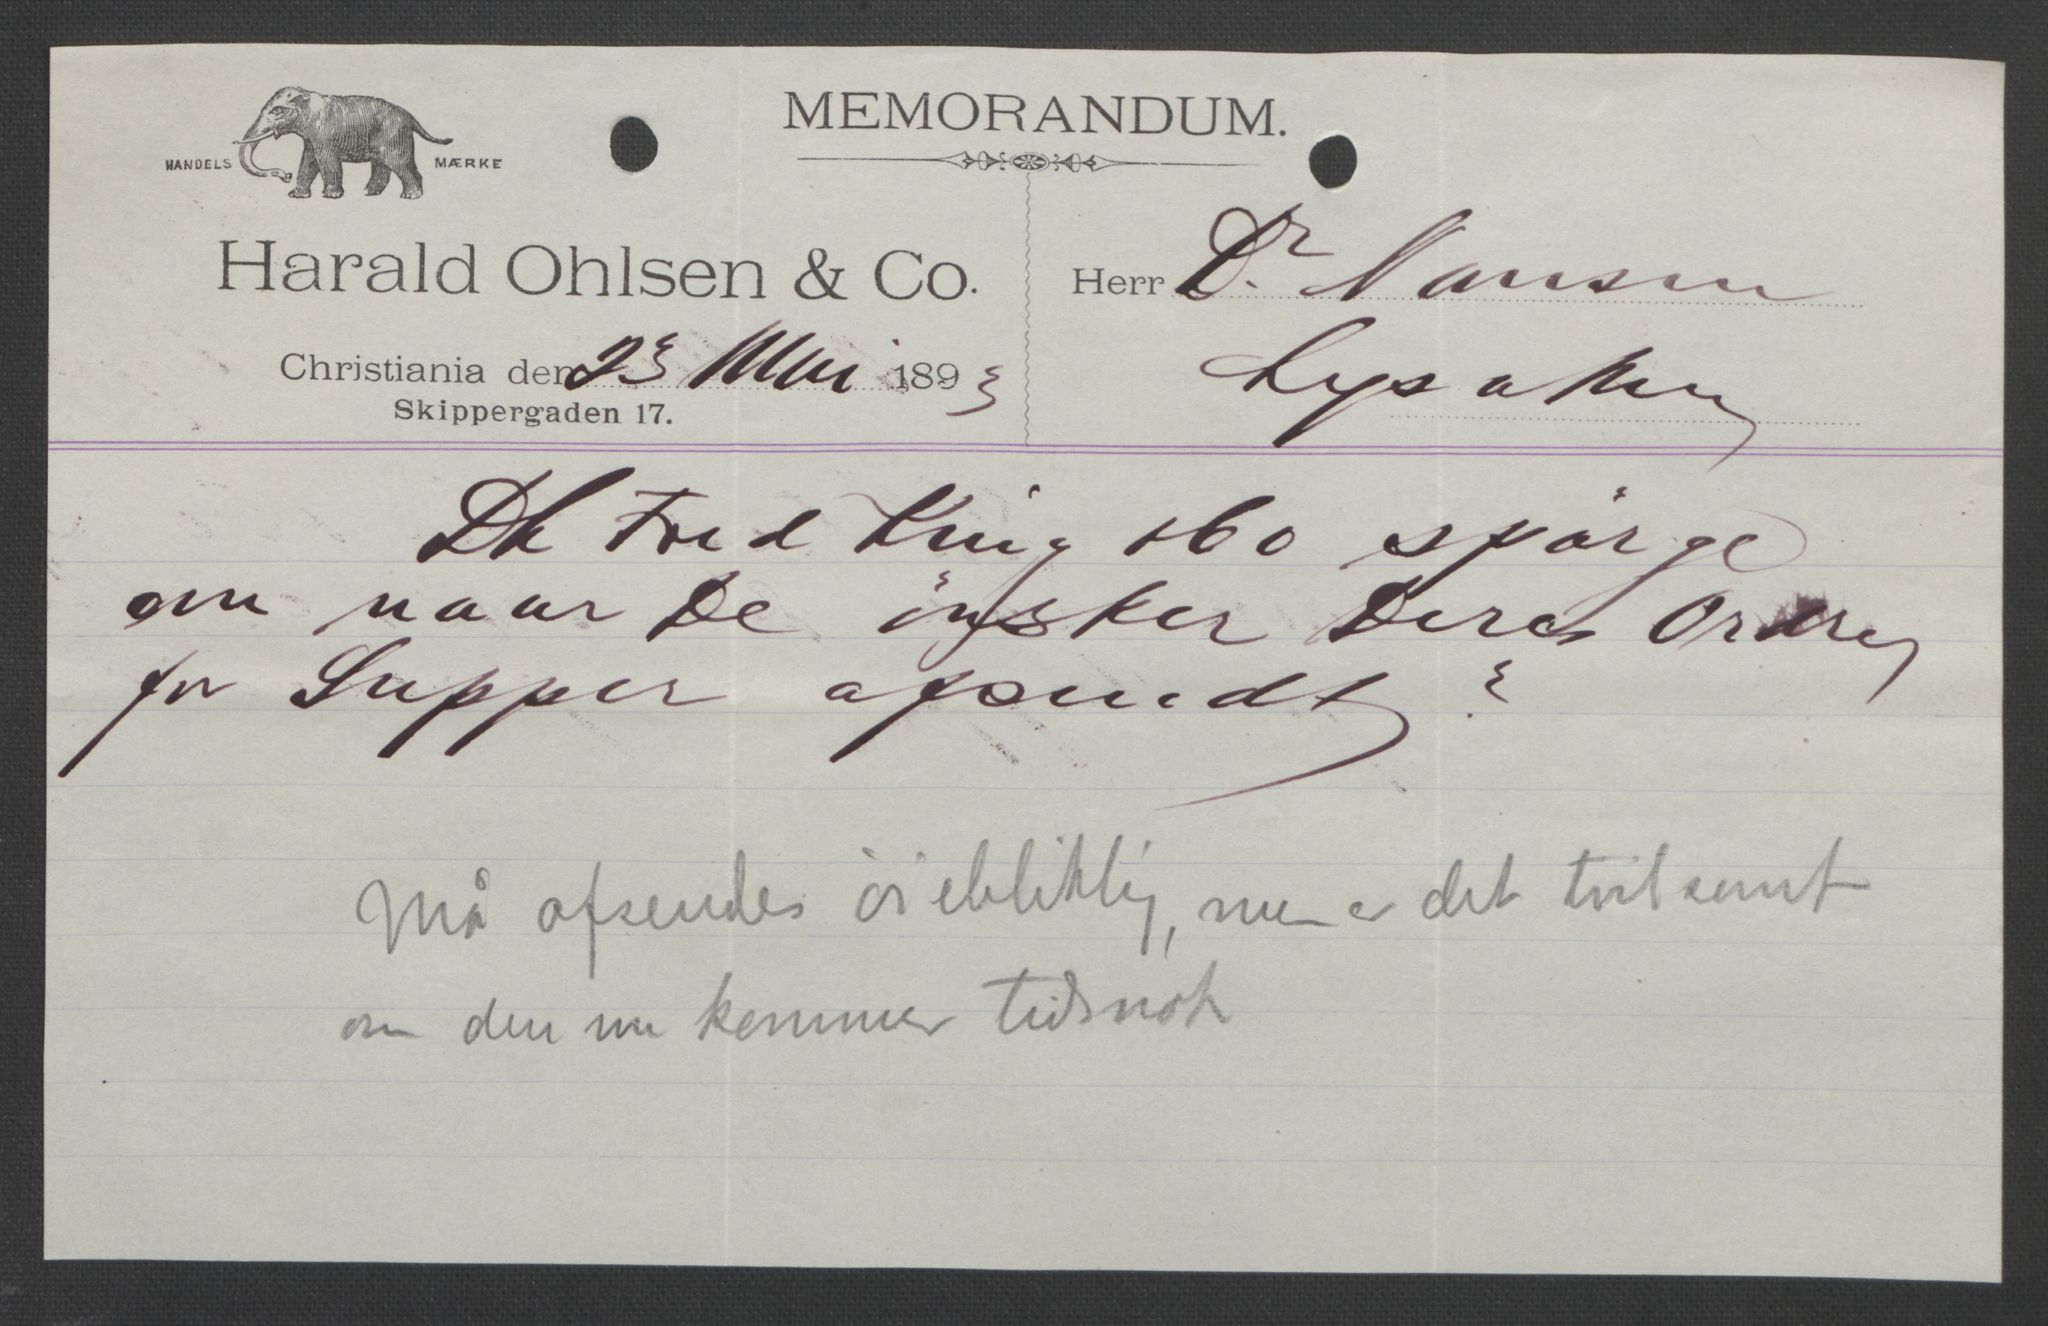 MEMORANDUM.
HANDELS MÆRKE
Harald Ohlsen & Co.
Christiania den 23 Mai 1893
Skippergaden 17.
Herr Dr. Nansen
Lysaker
Dh Fred King & Co spörge
om naar De önsker Deres Ordre
for Supper afsendt?
Må afsendes öiebliklig, men er det tvilsomt
om den nu kommer tidsnok